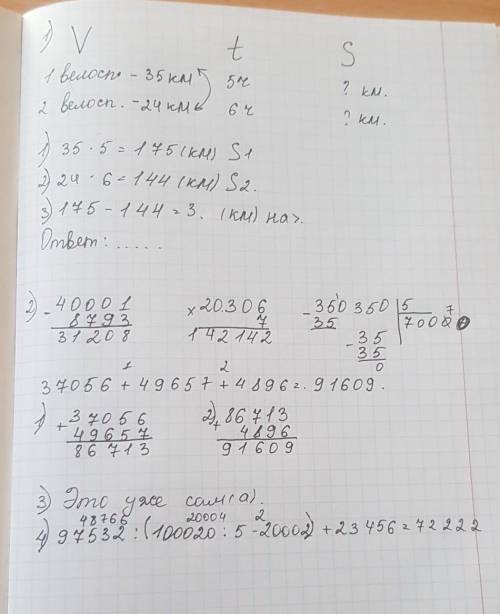 1) V t S
1 велосп. - 35 км 5ч ? км.
2 велосп. - 24 км 6 ч ? км.
1) 35 · 5 = 175 (км) S1
2) 24 · 6 = 144 (км) S2.
3) 175 - 144 = 3. (км) на>.
Ответ: .....
2) - 40001 × 20.306 - 350350 | 5
8793 7 35 7000 7
31208 142142 - 35
35
0
1 2
37056 + 49657 + 4896 = 91609.
1) + 37056 2) + 86713
49657 4896
86713 91609
3) Это уже сам(а).
48766 20004 2
4) 97532 : (100020 : 5 - 20002) + 23456 = 72222